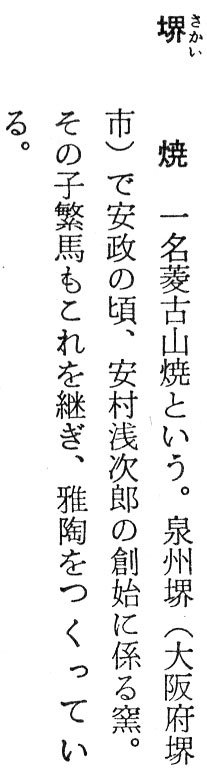 堺焼 一名菱古山焼という。泉州堺（大阪府堺
市）で安政の頃、安村浅次郎の創始に係る窯。
その子繁馬もこれを継ぎ、雅陶をつくってい
る。
さかい